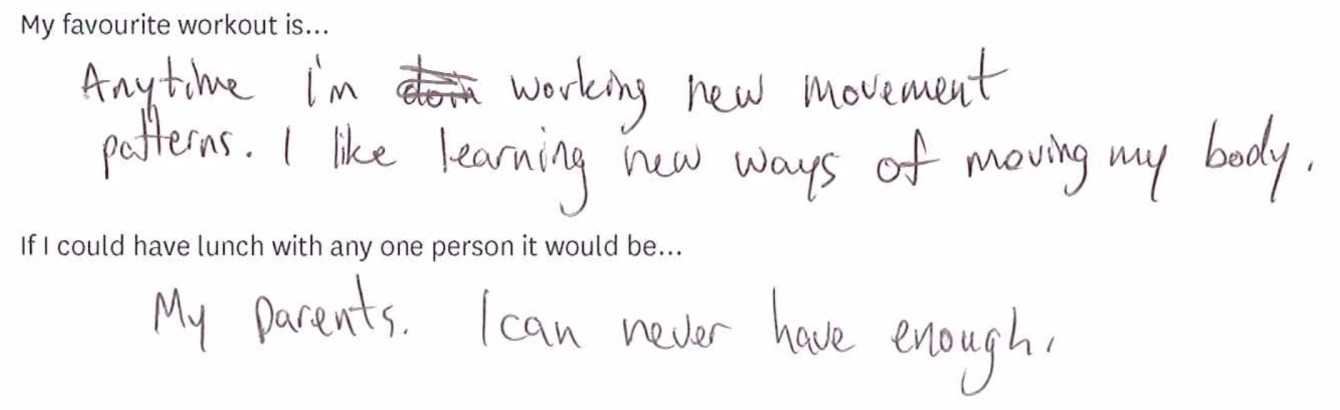 My favourite workout is...
Anytime I'm working new movement
patterns. I like learning new ways of moving my body.
If I could have lunch with any one person it would be...
My parents. I can never have enough.